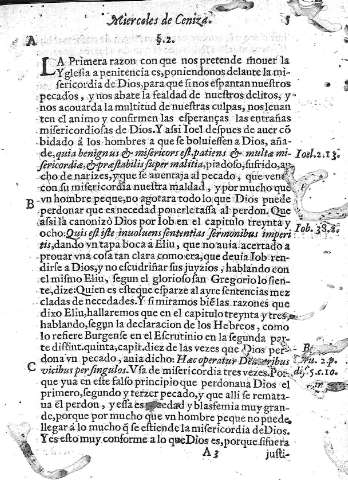 Miercoles de Ceniza. 5
A §. 2.
LA Primera razon con que nos pretende mouer la
Yglesia a penitencia es, poniendonos delante la mi-
sericordia de Dios, para que si nos espantan nuestros
pecados, y nos abate la fealdad de nuestros delitos, y
nos acouarda la multitud de nuestras culpas, nos leuan
ten el animo y confirmen las esperanças las entrañas
misericordiosas de Dios. Y assi Ioel despues de auer cō
bidado á los hombres a que se boluiessen a Dios, aña-
de, quia benignus & misericors est, patiens & multa mi- Ioel. 2. 13.
sericordiæ, & præstabilis super malitia, piadoso, sufrido, an
cho de narizes, y que se auentaja al pecado, que vence
con su misericordia nuestra maldad, y por mucho que
B vn hombre peque, no agotara todo lo que Dios puede
perdonar que es necedad ponerle tassa al perdon. Que
assi la canonizò Dios por Iob en el capitulo treynta y
ocho. Quis est iste inuoluens sententias sermonibus imperi Iob. 38. 2.
tis, dando vn tapa boca á Eliu, que no auia acertado a
prouar vna cosa tan clara como era, que deuia Iob ren-
dirse a Dios, y no escudriñar sus juyzios, hablando con
el mismo Eliu, segun el glorioso san Gregorio lo sien-
te, dize: Quien es este que esparze al ayre sentencias mez
cladas de necedades. Y si miramos biē las razones que
dixo Eliu, hallaremos que en el capitulo treynta y tres,
hablando, segun la declaracion de los Hebreos, como
lo refiere Burgense en el Escrutinio en la segunda par-
te distint. quinta, capit. diez de las vezes que Dios per-
dona vn pecado, auia dicho: Hæc operatur Deus tribus
C vicibus per singulos. Vsa de misericordia tres vezes. Por di. 5. c. 10.
que yua en este falso principio que perdonaua Dios el
primero, segundo y tercer pecado, y que alli se remata-
ua el perdon, y essa es necedad y blasfemia muy gran-
de, porque por mucho que vn hombre peque no puede
llegar á lo mucho q̃ se estiende la misericordia de Dios.
Y es esto muy conforme a lo que Dios es, porque si fuera
A 3 justi-